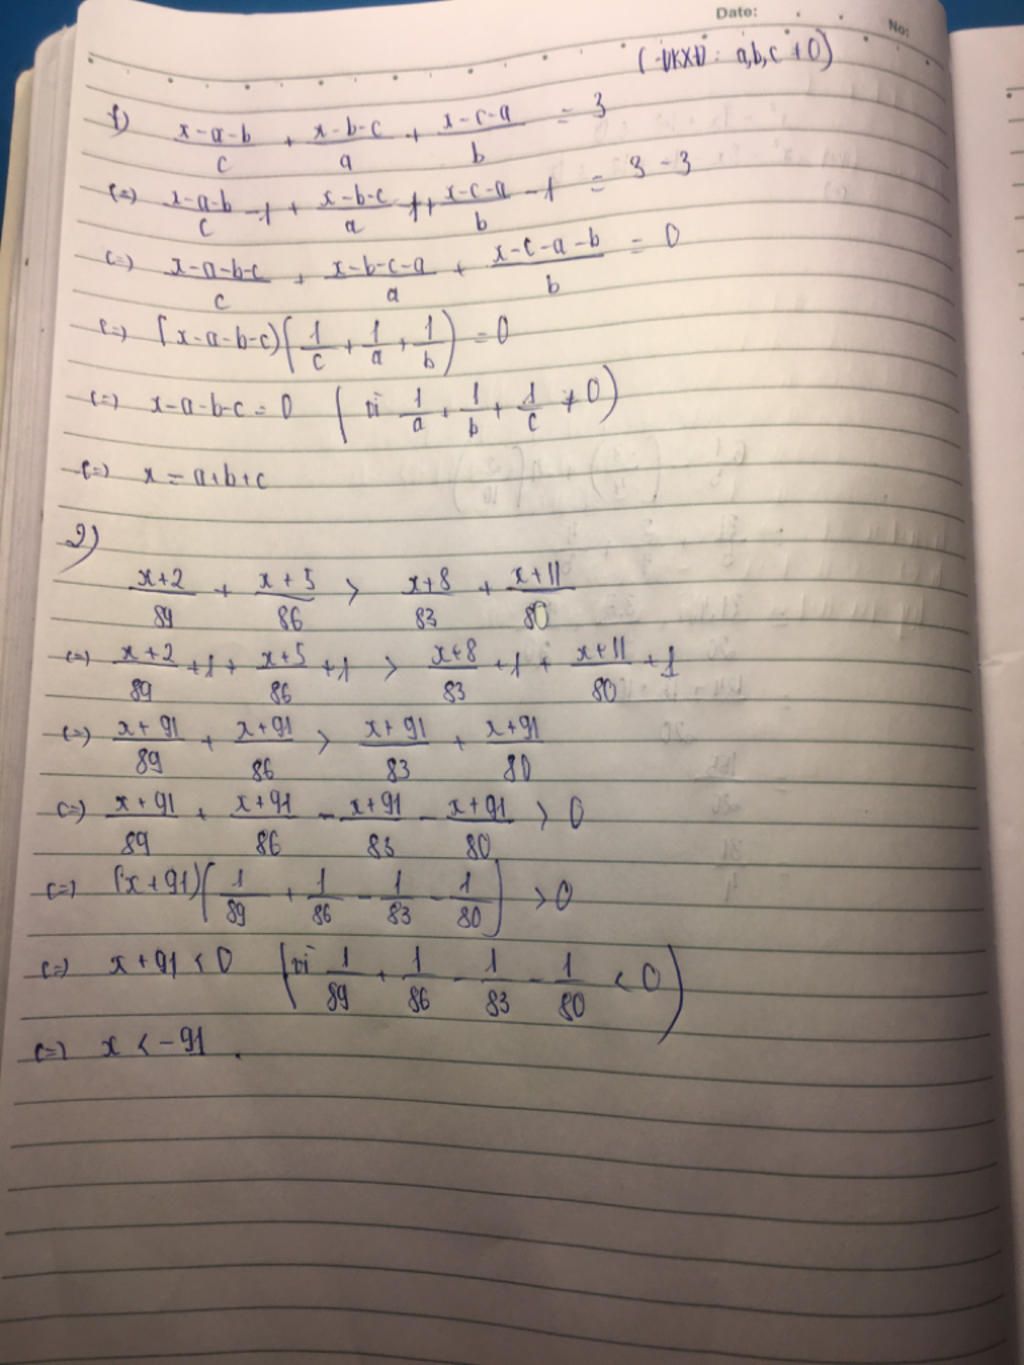 Date:
No:
(ĐKXĐ: a,b,c ≠ 0)
1) \frac{x-a-b}{c} + \frac{x-b-c}{a} + \frac{x-c-a}{b} = 3
(=) \frac{x-a-b}{c} - 1 + \frac{x-b-c}{a} - 1 + \frac{x-c-a}{b} - 1 = 3 - 3
(=) \frac{x-a-b-c}{c} + \frac{x-b-c-a}{a} + \frac{x-c-a-b}{b} = 0
(=) (x-a-b-c)(\frac{1}{c} + \frac{1}{a} + \frac{1}{b}) = 0
(=) x-a-b-c = 0 (vì \frac{1}{a} + \frac{1}{b} + \frac{1}{c} ≠ 0)
(=) x = a+b+c
2)
\frac{x+2}{89} + \frac{x+5}{86} > \frac{x+8}{83} + \frac{x+11}{80}
(=) \frac{x+2}{89} + 1 + \frac{x+5}{86} + 1 > \frac{x+8}{83} + 1 + \frac{x+11}{80} + 1
(=) \frac{x+91}{89} + \frac{x+91}{86} > \frac{x+91}{83} + \frac{x+91}{80}
(=) \frac{x+91}{89} + \frac{x+91}{86} - \frac{x+91}{83} - \frac{x+91}{80} > 0
(=) (x+91)(\frac{1}{89} + \frac{1}{86} - \frac{1}{83} - \frac{1}{80}) > 0
(=) x+91 < 0 (vì \frac{1}{89} + \frac{1}{86} - \frac{1}{83} - \frac{1}{80} < 0)
(=) x < -91.